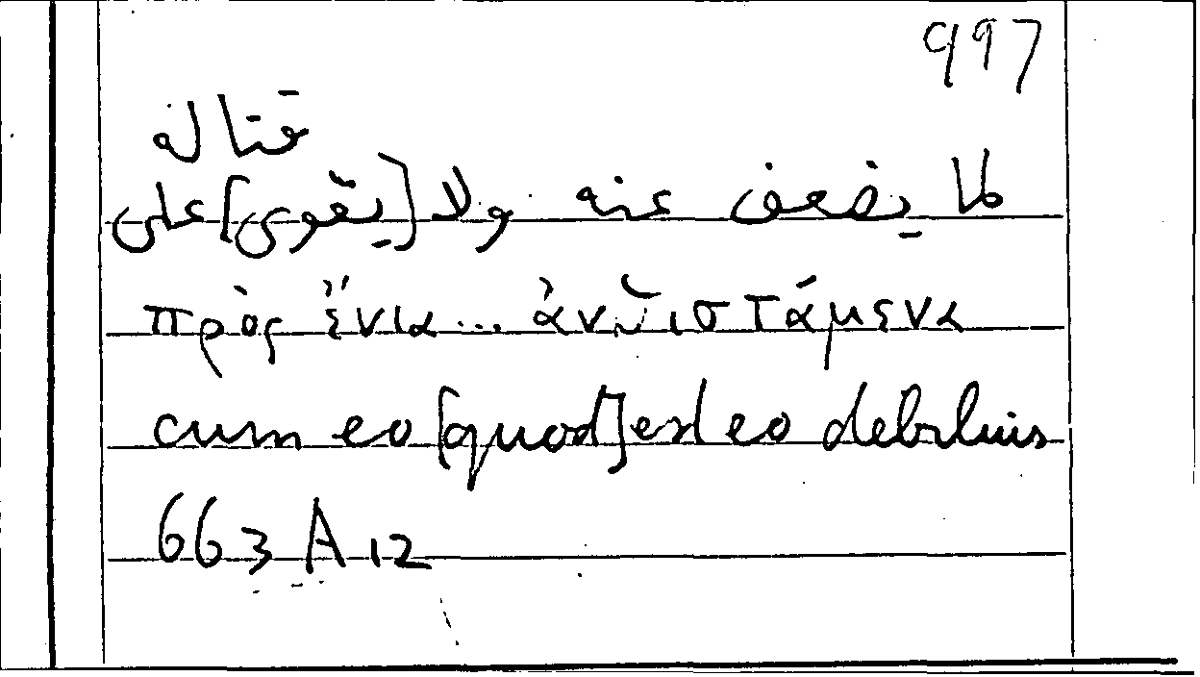 997
قتاله
لما يضعف عنه ولا [يقوى] على
πρὸς ἔνια... ἀνϑιστάμενα
cum eo [quod] est eo debilius
663 A 12